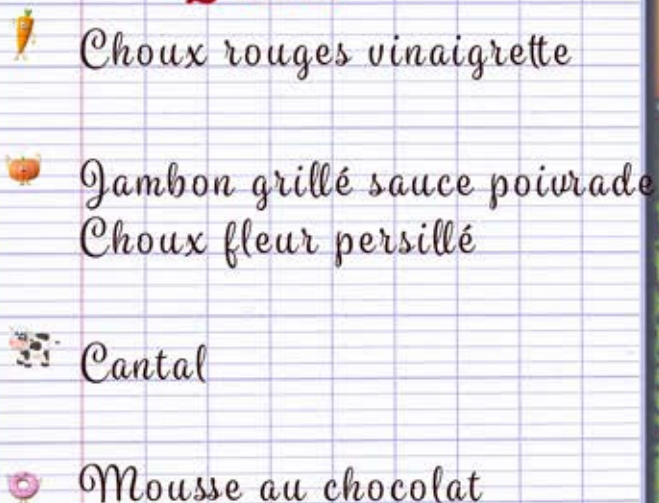 Choux rouges vinaigrette
Jambon grillé sauce poivrade
Choux fleur persillé
Cantal
Mousse au chocolat